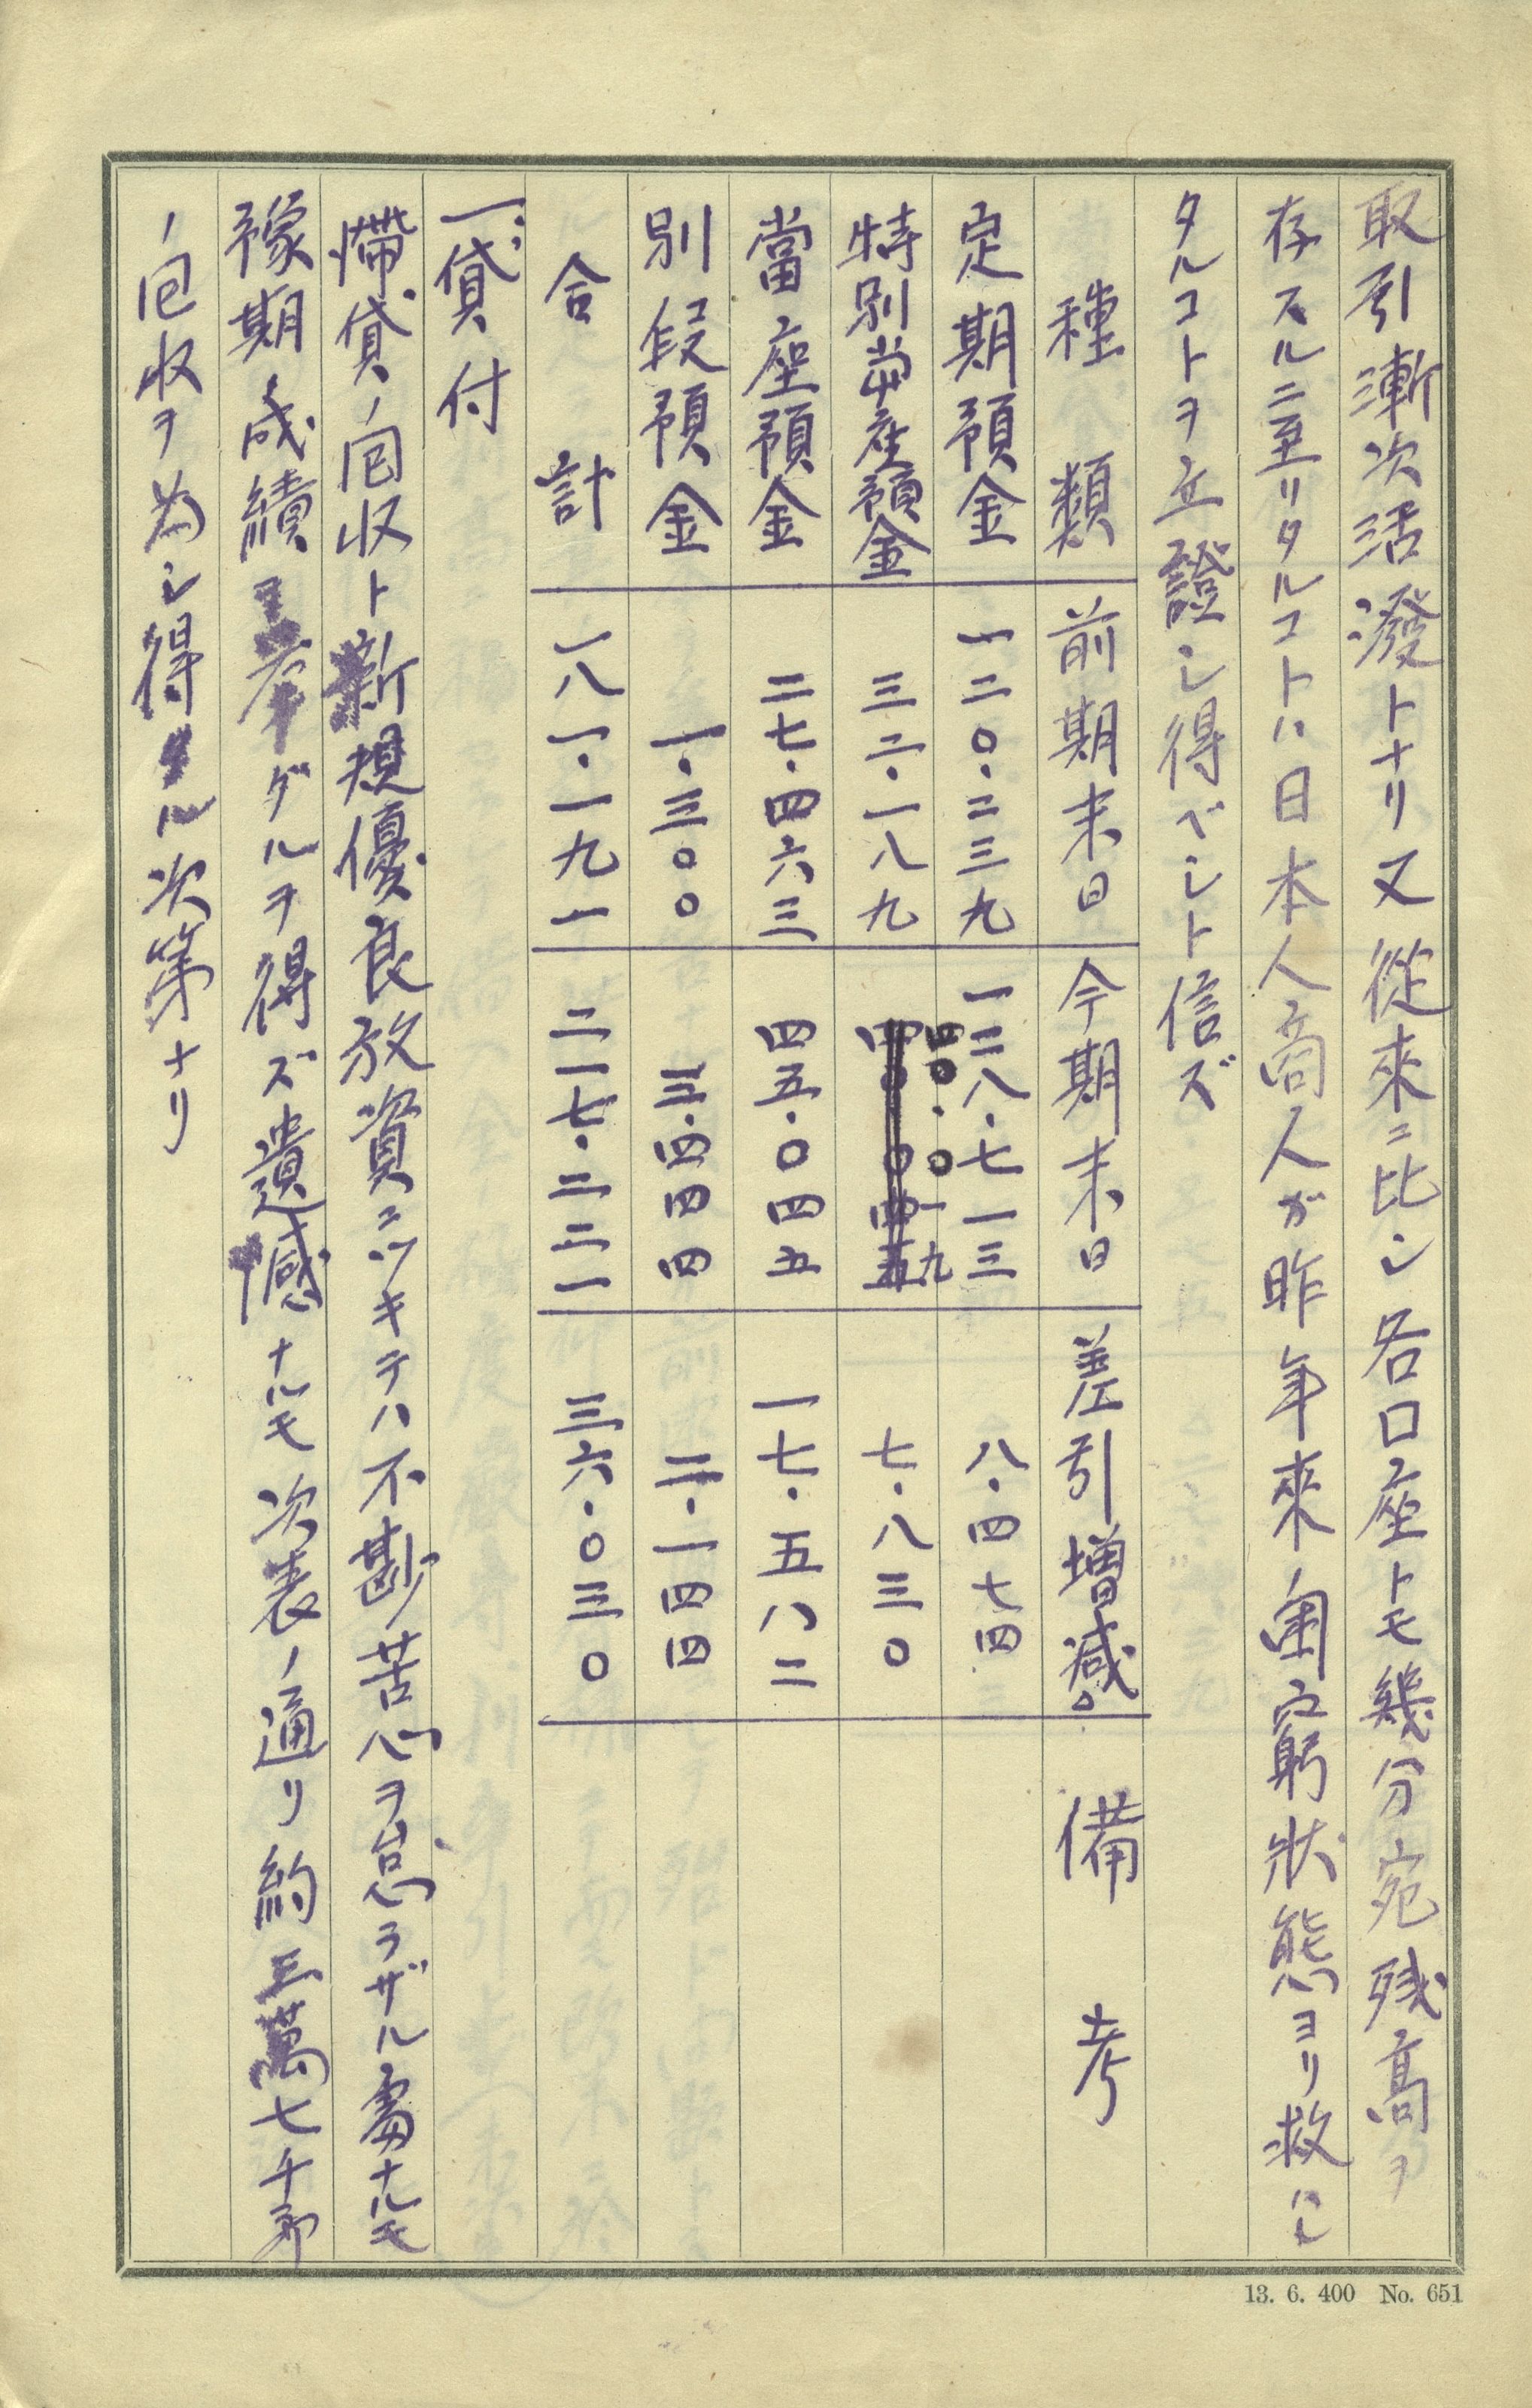 取引漸次活潑トナリ又從來ニ比シ各口座トモ幾分宛残高ヲ
存スルニ至リタルコトハ日本人商人ガ昨年來ノ困窮狀態ヨリ救ハレ
タルコトヲ立證シ得ベシト信ズ
種類 前期末日 今期末日 差引増減 備考
定期預金 一二〇.二三九 一二八.七一三 八.四七四
特別當座預金 三二.一八九 四〇.〇一九 七.八三〇
當座預金 二七.四六三 四五.〇四五 一七.五八二
別段預金 一.三〇〇 三.四四四 二.一四四
合計 一八一.一九一 二一七.二二一 三六.〇三〇
一、貸付
滯貸ノ囘収ト新規優良放資ニツキテハ不尠苦心ヲ怠ラザル處ナルモ
豫期ノ成績ヲ擧ゲルヲ得ズ遺憾ナルモ次表ノ通リ約三萬七千弗
ノ囘収ヲ為シ得タル次第ナリ
13. 6. 400 No. 651